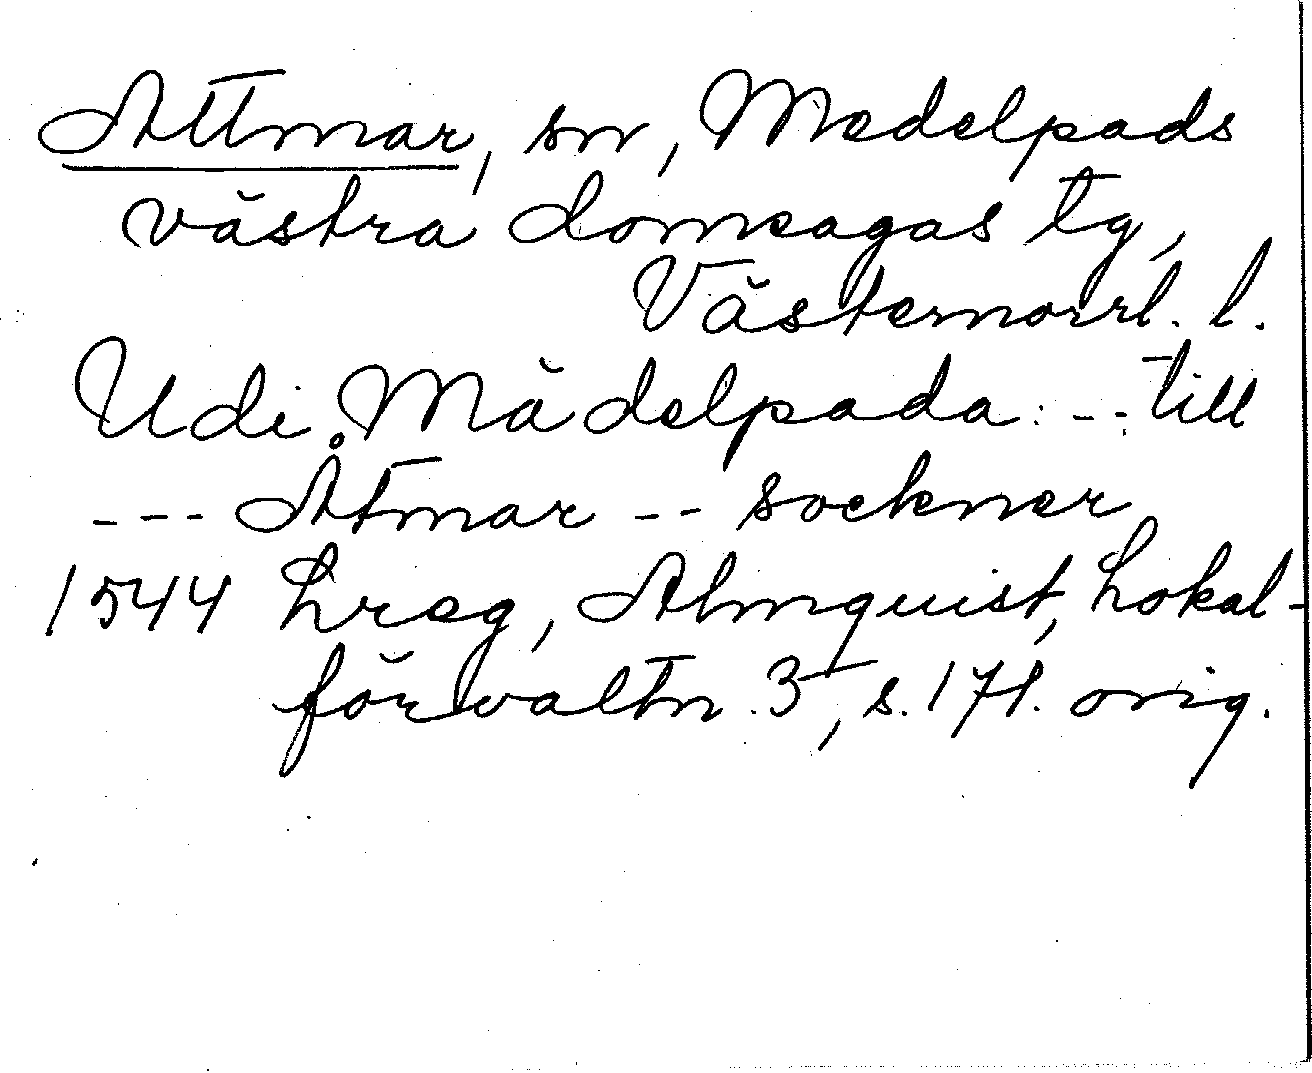 Attmar, sn, Medelpads
västra domsagas tg,
Västernorrl. l.
Udi Mädelpada: --. till
--- Åtmar -- sockner
1544 hreg, Almquist, Lokal-
förvaltn. 3, s. 171. orig.